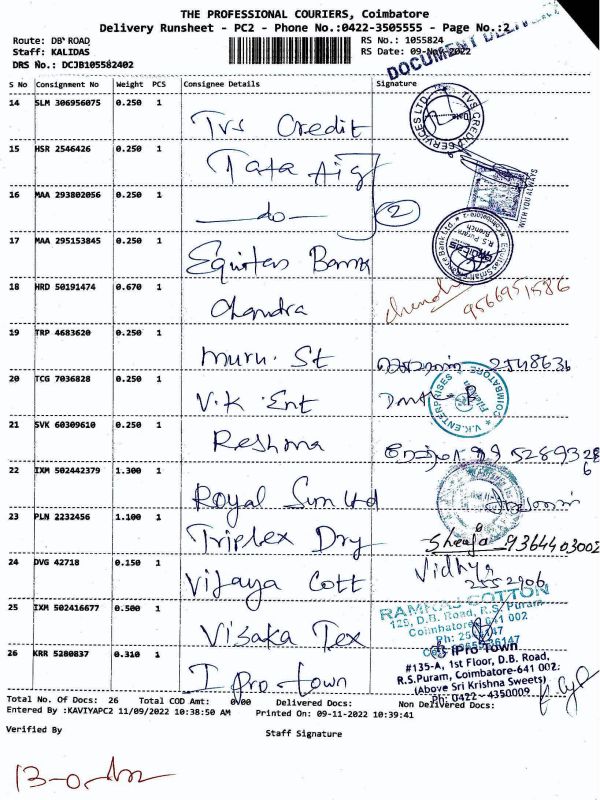 THE PROFESSIONAL COURIERS, Coimbatore
Delivery Runsheet - PC2 - Phone No.:0422-3505555 - Page No.:2
Route: DB ROAD RS No.: 1055824
Staff: KALIDAS RS Date: 09-Nov-2022
DRS No.: DCJB105582402
DOCUMENT
S No Consignment No Weight PCS Consignee Details Signature
14 SLM 306956075 0.250 1 Tvs Credit
TVS CREDIT SERVICES LTD
15 HSR 2546426 0.250 1 Tata Aig
WITH YOU ALWAYS
16 MAA 293802056 0.250 1 —do— 2
17 MAA 295153845 0.250 1 Equitas Bank
R.S. Puram Branch
18 HRD 50191474 0.670 1 Chandra 9566951586
19 TRP 4683620 0.250 1 Muru. St 2548636
20 TCG 7036828 0.250 1 V.K. Ent
V.K. ENTERPRISES COIMBATORE
21 SVK 60309610 0.250 1 Reshma
22 IXM 502442379 1.300 1 Royal Sun Ltd
23 PLN 2232456 1.100 1 Triplex Dry 9364403002
24 DVG 42718 0.150 1 Vijaya Cott Vidhya 2552906
25 IXM 502416677 0.500 1 Visaka Tex
RAMRAJ COTTON
D.B. Road, R.S. Puram
Coimbatore 641 002
26 KRR 5280837 0.310 1 I pro-town
IPro Town
#135-A, 1st Floor, D.B. Road,
R.S.Puram, Coimbatore-641 002.
(Above Sri Krishna Sweets)
Ph: 0422-4350009
Total No. Of Docs: 26 Total COD Amt: 0.00 Delivered Docs: Non Delivered Docs:
Entered By :KAVIYAPC2 11/09/2022 10:38:50 AM Printed On: 09-11-2022 10:39:41
Verified By Staff Signature